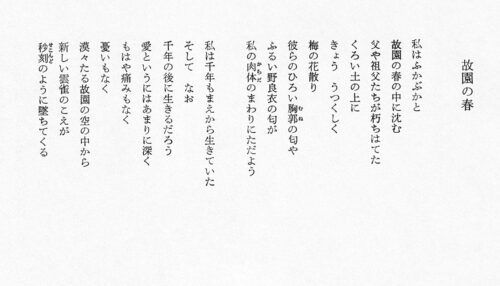 故園の春
私はふかぶかと
故園の春の中に沈む
父や祖父たちが朽ちはてた
くろい土の上に
きょう　うつくしく
梅の花散り
彼らのひろい胸郭の匂や
むね
ふるい野良衣の匂が
私の肉体のまわりにただよう
からだ
私は千年もまえから生きていた
そして　なお
千年の後に生きるだろう
愛というにはあまりに深く
もはや痛みもなく
憂いもなく
漠々たる故園の空の中から
新しい雲雀のこえが
秒刻のように墜ちてくる